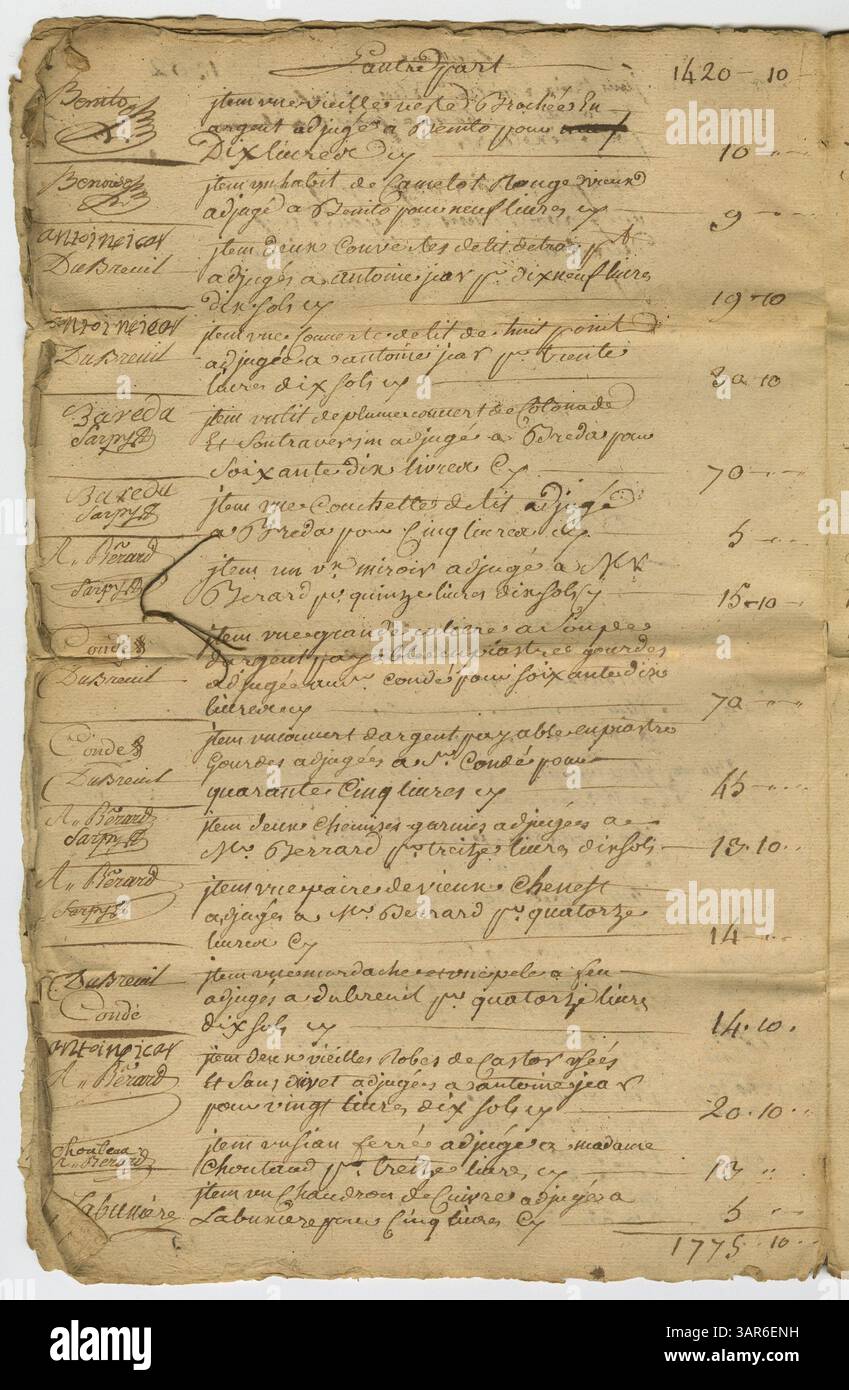 L'autre part 1420 - 10
Benito
Item une vieille veste Brochée En
argent adjugé a Benito pour
Dix livres Cy 10
Benito
Item un habit de Camelot Rouge vieux
adjugé a Benito pour neuf livres cy 9
antoine icar
DuBreuil
Item deux Couvertes de lit de trois pt
adjugés a antoine icar pr. dixneuf livres
dix sols cy 19 - 10
antoine icar
DuBreuil
Item une Couverte de lit de huit point
adjugée a antoine icar pr trente
livres dix sols cy 30 10
Bareda
Sarpy
Item un lit de plume couvert de Cotonade
Et son traversin adjugé a Breda pour
Soixante dix livres Cy 70
Bareda
Sarpy
Item une Couchette de lit adjugé
a Breda pour Cinq livres cy 5
A. Bérard
Sarpy
Item un vx miroir adjugé a Mr
Berard pr. quinze livres dix sols cy 15 - 10
Condé
DuBreuil
Item une grande cuillere a Soupe
d'argent payable en piastres gourdes
adjugée au Sr. Condé pour soixante dix
livres cy 70
Condé
DuBreuil
Item un couvert d'argent payable en piastre
Gourdes adjugées a Sr. Condé pour
quarante Cinq livres cy 45
A. Bérard
Sarpy
Item deux Chemises garnies adjugées a
Mr. Berrard pr. treitze livres dix sols 13 . 10
A. Bérard
Sarpy
Item une paire de vieux Chenest
adjugés a Mr. Berrard pr. quatorze
livres Cy 14
DuBreuil
Condé
Item une mordache et une pele a feu
adjugés a dubreuil pr. quatorze livres
dix sols cy 14 . 10
antoine icar
A. Bérard
Item deux vieilles Robes de Castor usées
Et sans duvet adjugées a antoine icar
pour vingt livres dix sols cy 20 . 10
Chouteau
A. Berard
Item un ferré adjugé a madame
Choutaud pr. treitze livres cy 13
Labuxière
Item un Chaudron de Cuivre adjugé a
Labuxiere pour Cinq livres Cy 5
1775 . 10
alamy
Image ID: 3AR6ENH
www.alamy.com